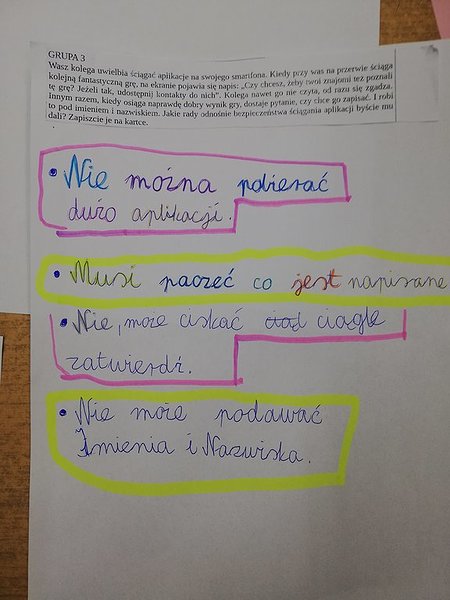 GRUPA 3
Wasz kolega uwielbia ściągać aplikacje na swojego smartfona. Kiedy przy was na przerwie ściąga
kolejną fantastyczną grę, na ekranie pojawia się napis: „Czy chcesz, żeby twoi znajomi też poznali
tę grę? Jeżeli tak, udostępnij kontakty do nich”. Kolega nawet go nie czyta, od razu się zgadza.
Innym razem, kiedy osiąga naprawdę dobry wynik gry, dostaje pytanie, czy chce go zapisać. I robi
to pod imieniem i nazwiskiem. Jakie rady odnośnie bezpieczeństwa ściągania aplikacji byście mu
dali? Zapiszcie je na kartce.
• Nie można pobierać
dużo aplikacji.
• Musi paczeć co jest napisane
• Nie, może ciskać ciąg ciągle
zatwierdź.
• Nie może podawać
Imienia i Nazwiska.